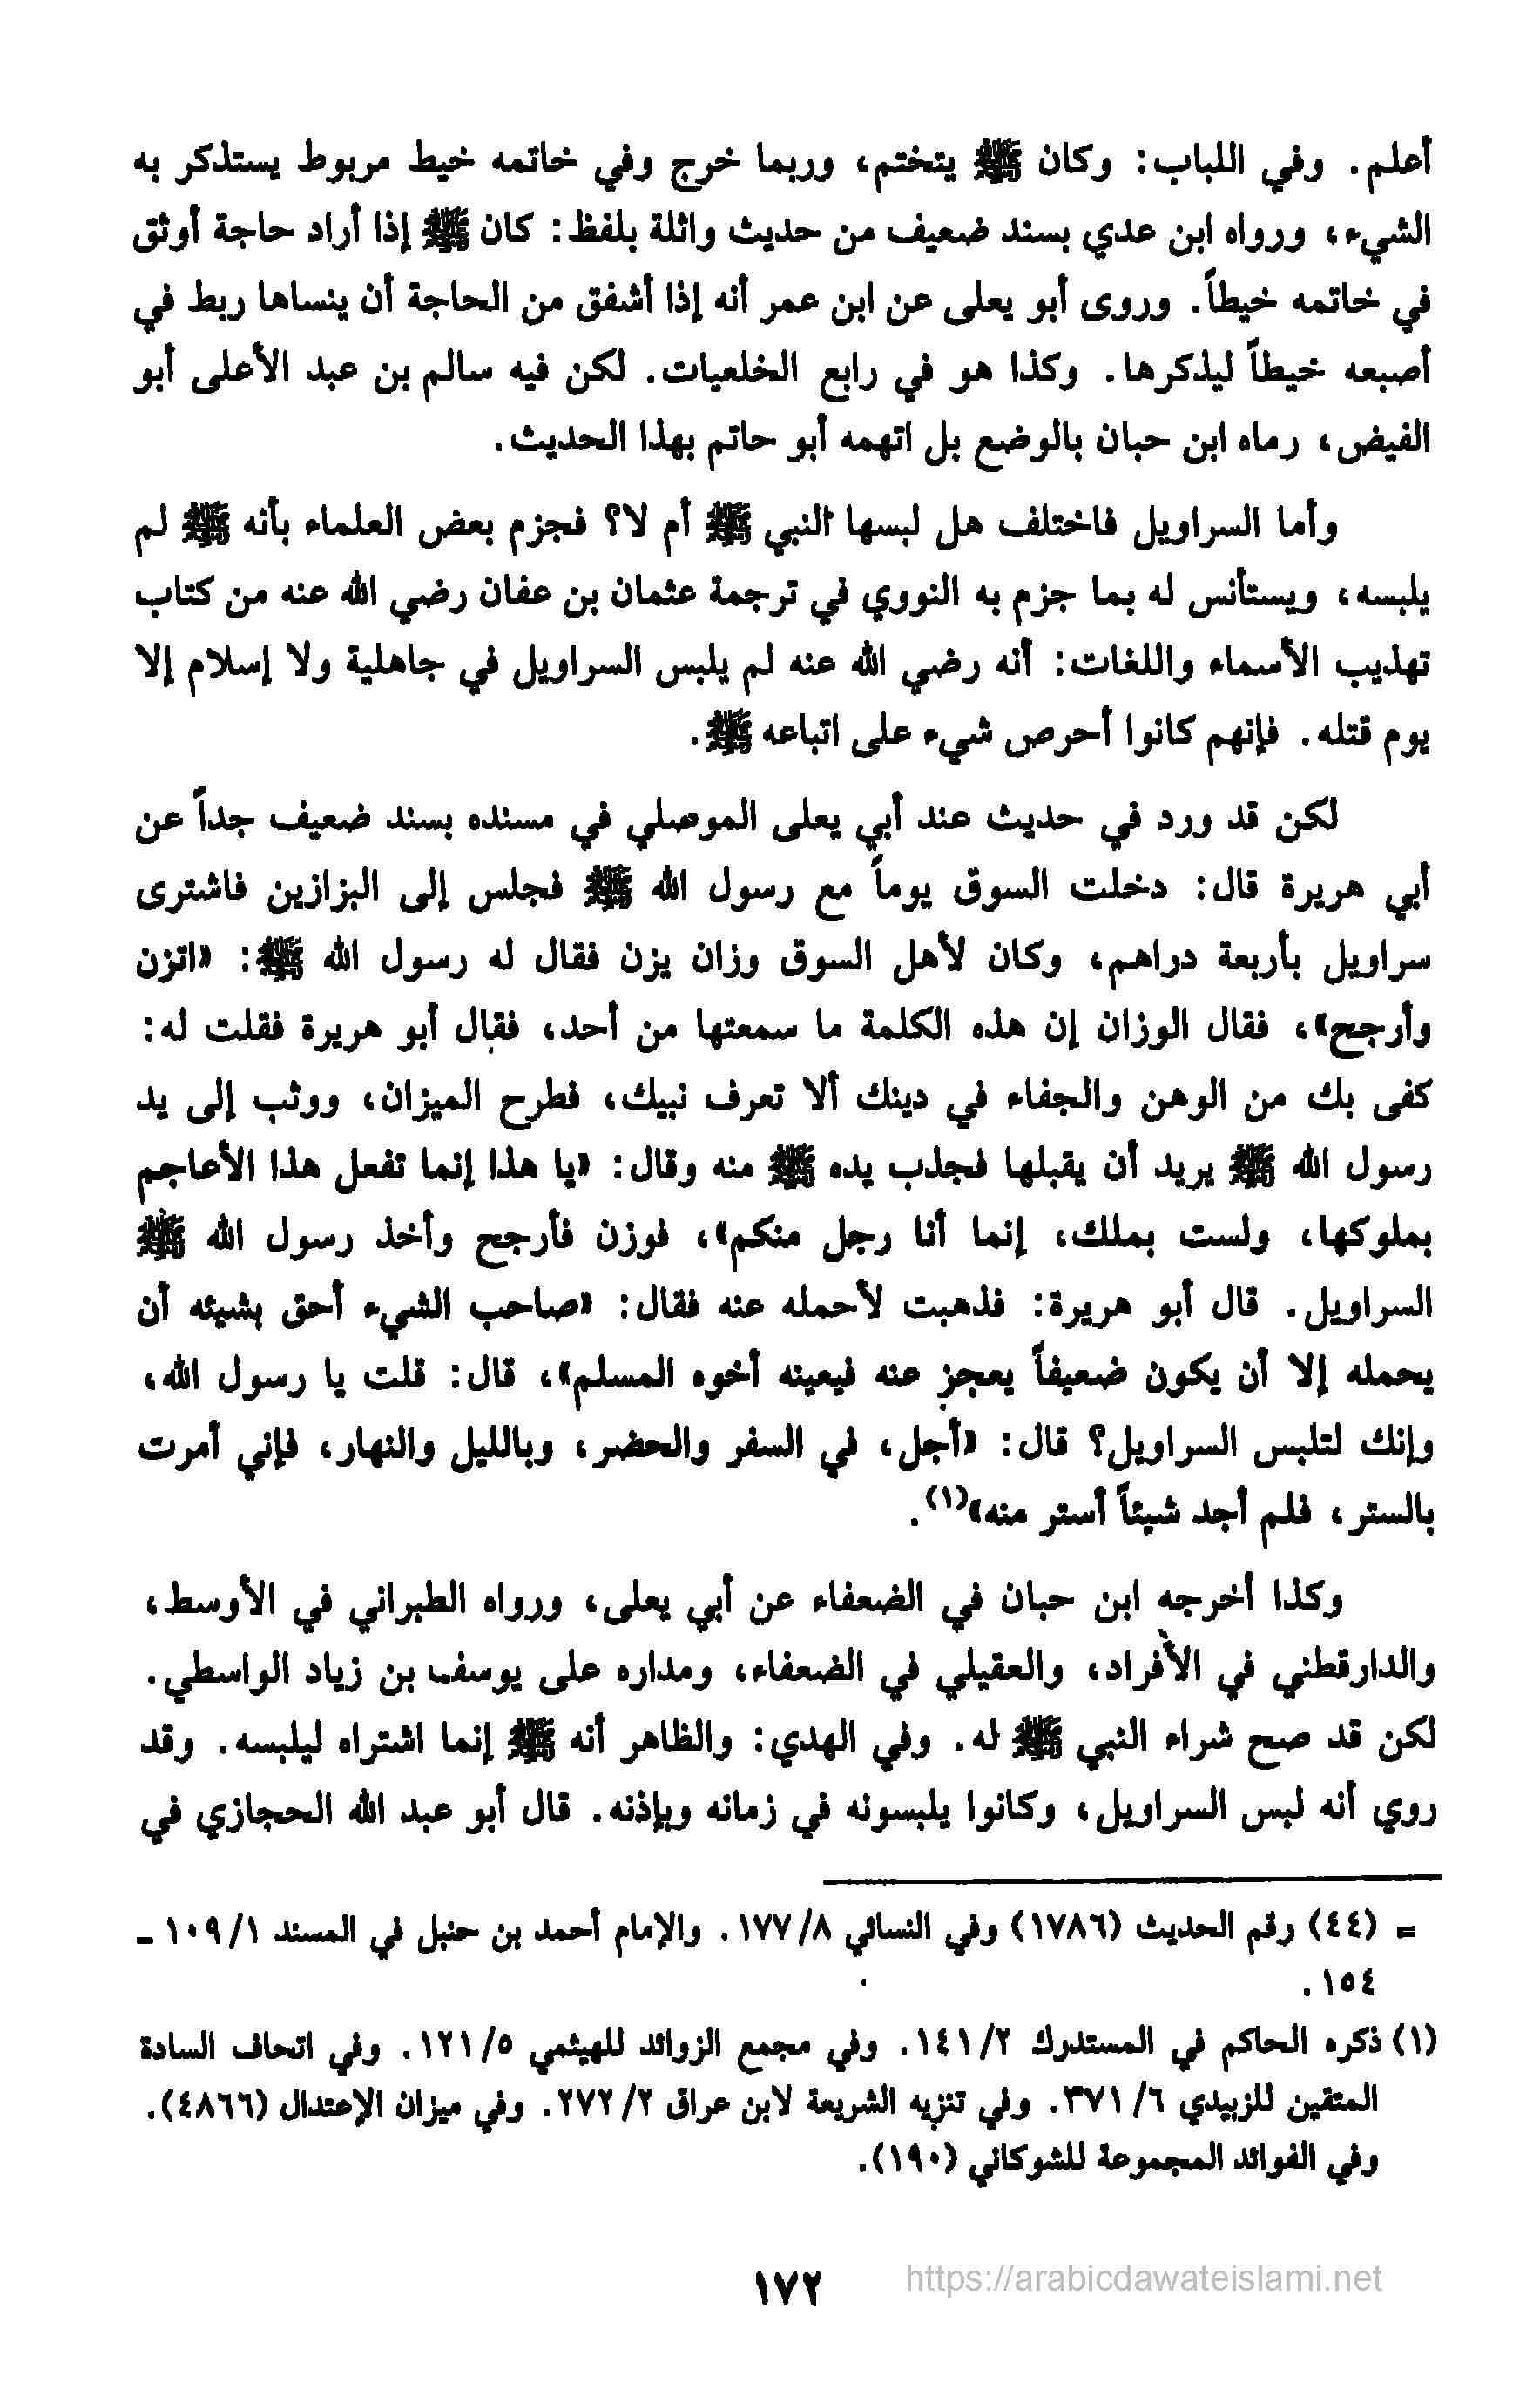 أعلم. وفي اللباب: وكان ﷺ يتختم، وربما خرج وفي خاتمه خيط مربوط يستذكر به
الشيء، ورواه ابن عدي بسند ضعيف من حديث واثلة بلفظ: كان ﷺ إذا أراد حاجة أوثق
في خاتمه خيطاً. وروى أبو يعلى عن ابن عمر أنه إذا أشفق من الحاجة أن ينساها ربط في
أصبعه خيطاً ليذكرها. وكذا هو في رابع الخلعيات. لكن فيه سالم بن عبد الأعلى أبو
الفيض، رماه ابن حبان بالوضع بل اتهمه أبو حاتم بهذا الحديث.
وأما السراويل فاختلف هل لبسها النبي ﷺ أم لا؟ فجزم بعض العلماء بأنه ﷺ لم
يلبسه، ويستأنس له بما جزم به النووي في ترجمة عثمان بن عفان رضي الله عنه من كتاب
تهذيب الأسماء واللغات: أنه رضي الله عنه لم يلبس السراويل في جاهلية ولا إسلام إلا
يوم قتله. فإنهم كانوا أحرص شيء على اتباعه ﷺ.
لكن قد ورد في حديث عند أبي يعلى الموصلي في مسنده بسند ضعيف جداً عن
أبي هريرة قال: دخلت السوق يوماً مع رسول الله ﷺ فجلس إلى البزازين فاشترى
سراويل بأربعة دراهم، وكان لأهل السوق وزان يزن فقال له رسول الله ﷺ: «اتزن
وأرجح»، فقال الوزان إن هذه الكلمة ما سمعتها من أحد، فقال أبو هريرة فقلت له:
كفى بك من الوهن والجفاء في دينك ألا تعرف نبيك، فطرح الميزان، ووثب إلى يد
رسول الله ﷺ يريد أن يقبلها فجذب يده ﷺ منه وقال: «يا هذا إنما تفعل هذا الأعاجم
بملوكها، ولست بملك، إنما أنا رجل منكم»، فوزن فأرجح وأخذ رسول الله ﷺ
السراويل. قال أبو هريرة: فذهبت لأحمله عنه فقال: «صاحب الشيء أحق بشيئه أن
يحمله إلا أن يكون ضعيفاً يعجز عنه فيعينه أخوه المسلم»، قال: قلت يا رسول الله،
وإنك لتلبس السراويل؟ قال: «أجل، في السفر والحضر، وبالليل والنهار، فإني أمرت
بالستر، فلم أجد شيئاً أستر منه»(١).
وكذا أخرجه ابن حبان في الضعفاء عن أبي يعلى، ورواه الطبراني في الأوسط،
والدارقطني في الأفراد، والعقيلي في الضعفاء، ومداره على يوسف بن زياد الواسطي.
لكن قد صح شراء النبي ﷺ له. وفي الهدي: والظاهر أنه ﷺ إنما اشتراه ليلبسه. وقد
روي أنه لبس السراويل، وكانوا يلبسونه في زمانه وبإذنه. قال أبو عبد الله الحجازي في
= (٤٤) رقم الحديث (١٧٨٦) وفي النسائي ١٧٧/٨. والإمام أحمد بن حنبل في المسند ١٠٩/١ -
١٥٤.
(١) ذكره الحاكم في المستدرك ١٤١/٢. وفي مجمع الزوائد للهيثمي ١٢١/٥. وفي اتحاف السادة
المتقين للزبيدي ٣٧١/٦. وفي تنزيه الشريعة لابن عراق ٢٧٢/٢. وفي ميزان الإعتدال (٤٨٦٦).
وفي الفوائد المجموعة للشوكاني (١٩٠).
١٧٢
https://arabicdawateislami.net